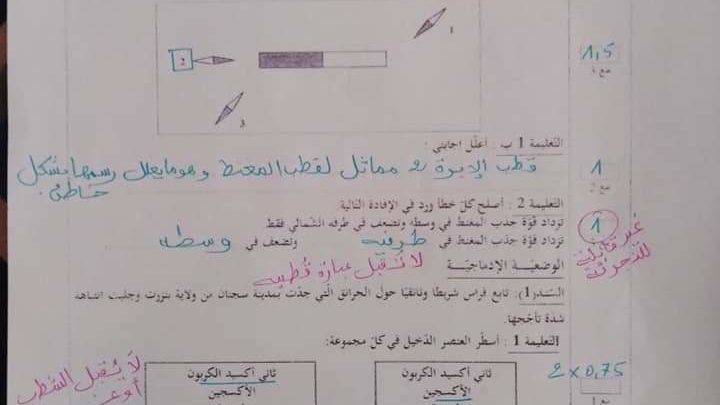 1
1,5
مع 4
2
3
التعليمة 1 ب : أعلّل اجابتي :
قطب الإبرة 2 مماثل لقطب المغنط وهو ما يعلل رسمها بشكل خاطئ.
1
مع 2
التعليمة 2 : أصلح كلّ خطأ ورد في الإفادة التالية
تزداد قوّة جذب المغنط في وسطه وتضعف في طرفه الشّمالي فقط
تزداد قوّة جذب المغنط في طرفيه وتضعف في وسطه
1
غير قابلة للتجزئة
لا تُقبل عبارة قُطبيه
الوضعيّة الإدماجيّة
السّند(1): تابع فراس شريطا وثائقيّا حول الحرائق الّتي جدّت بمدينة سجنان من ولاية بنزرت وجلبت انتباهه
شدة تأجّجها.
التعليمة 1 : أسطّر العنصر الدّخيل في كلّ مجموعة:
2×0,75
لا يُقبل الشطب
ثاني أكسيد الكربون
ثاني أكسيد الكربون
الأكسجين
الأكسجين
مع 1